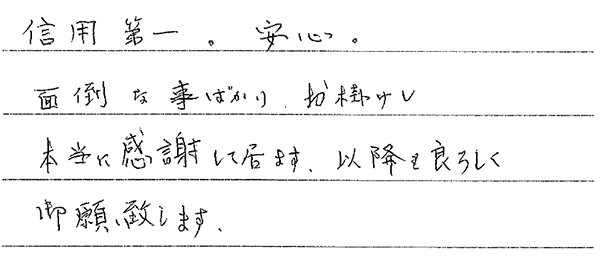 信用第一。安心。
面倒な事ばかり、お掛けし
本当に感謝して居ます、以降も良ろしく
御願い致します、